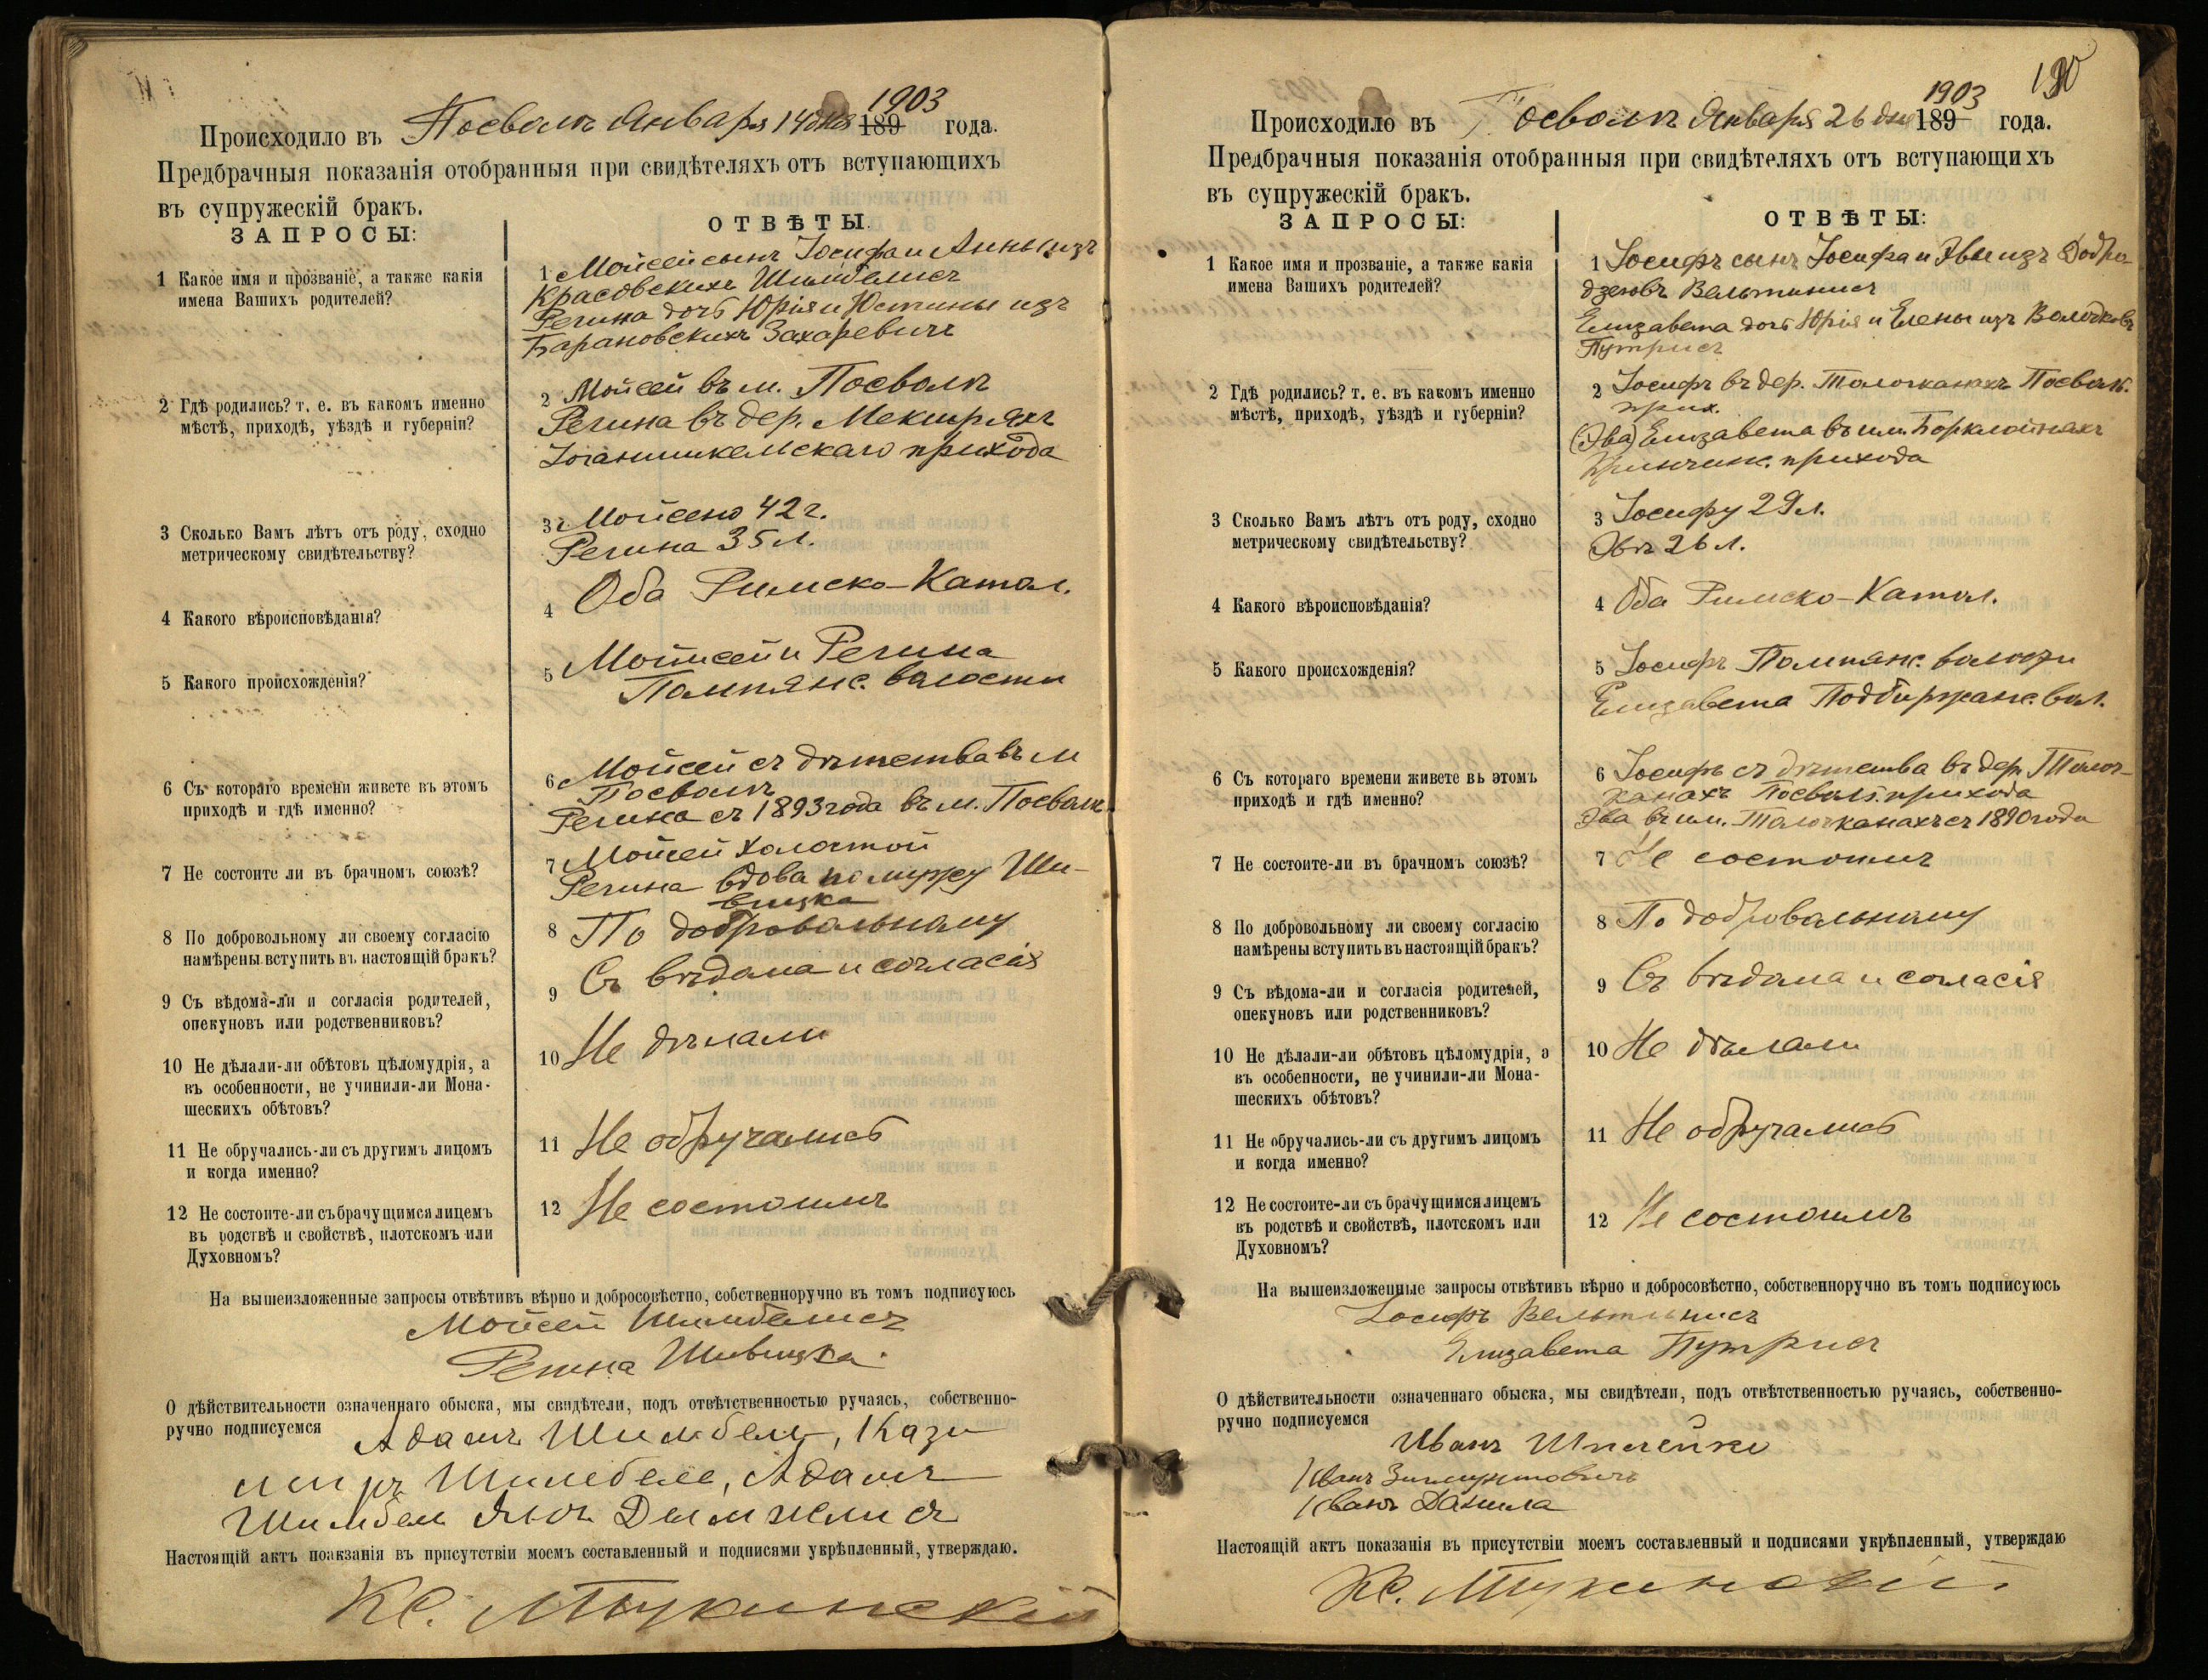 1903
Происходило въ Посволѣ Января 14 дня 189 года.
Предбрачныя показанія отобранныя при свидѣтеляхъ отъ вступающихъ
въ супружескій бракъ.
ЗАПРОСЫ:
ОТВѢТЫ.
1 Какое имя и прозваніе, а также какія
имена Вашихъ родителей?
1 Мойсей сынъ Іосифа и Анны изъ
Красовскихъ Шимбелисъ
Регина дочь Юрія и Юстины изъ
Барановскихъ Захаревичъ
2 Гдѣ родились? т. е. въ какомъ именно
мѣстѣ, приходѣ, уѣздѣ и губерніи?
2 Мойсей въ м. Посволѣ
Регина въ дер.
Іоганишкельскаго прихода
3 Сколько Вамъ лѣтъ отъ роду, сходно
метрическому свидѣтельству?
3 Мойсею 42 г.
Регина 35 л.
4 Какого вѣроисповѣданія?
4 Оба Римско-Катол.
5 Какого происхожденія?
5 Мойсей и Регина
Помпянс. волости
6 Съ котораго времени живете въ этомъ
приходѣ и гдѣ именно?
6 Мойсей съ дѣтства въ м
Посволѣ
Регина съ 1893 года въ м. Посволѣ
7 Не состоите ли въ брачномъ союзѣ?
7 Мойсей холостой
Регина вдова по мужу Ши-
вицка
8 По добровольному ли своему согласію
намѣрены вступить въ настоящій бракъ?
8 По добровольному
9 Съ вѣдома-ли и согласія родителей,
опекуновъ или родственниковъ?
9 Съ вѣдома и согласія
10 Не дѣлали-ли обѣтовъ цѣломудрія, а
въ особенности, не учинили-ли Мона-
шескихъ обѣтовъ?
10 Не дѣлали
11 Не обручались-ли съ другимъ лицомъ
и когда именно?
11 Не обручались
12 Не состоите-ли съ брачущимся лицемъ
въ родствѣ и свойствѣ, плотскомъ или
Духовномъ?
12 Не состоимъ
На вышеизложенные запросы отвѣтивъ вѣрно и добросовѣстно, собственноручно въ томъ подписуюсь
Мойсей Шимбелисъ
Регина Шивицка
О дѣйствительности означеннаго обыска, мы свидѣтели, подъ отвѣтственностью ручаясь, собственно-
ручно подписуемся Адамъ Шимбель, Кази
миръ Шимбель, Адамъ
Шимбель
Настоящій актъ поакзанія въ присутствіи моемъ составленный и подписями укрѣпленный, утверждаю.
Кс.
190
1903
Происходило въ Посволѣ Января 26 дня 189 года.
Предбрачныя показанія отобранныя при свидѣтеляхъ отъ вступающихъ
въ супружескій бракъ.
ЗАПРОСЫ:
ОТВѢТЫ:
1 Какое имя и прозваніе, а также какія
имена Вашихъ родителей?
1 Іосифъ сынъ Іосифа и Эвы изъ
Вельтинисъ
Елизавета дочь Юрія и Елены изъ
Путрисъ
2 Гдѣ родились? т. е. въ какомъ именно
мѣстѣ, приходѣ, уѣздѣ и губерніи?
2 Іосифъ въ дер. Толочканахъ Посвол.
прих.
(Эва) Елизавета въ им.
прихода
3 Сколько Вамъ лѣтъ отъ роду, сходно
метрическому свидѣтельству?
3 Іосифу 29 л.
Эвѣ 26 л.
4 Какого вѣроисповѣданія?
4 Оба Римско-Катол.
5 Какого происхожденія?
5 Іосифъ Помпянс. волости
Елизавета Подбиржанс. вол.
6 Съ котораго времени живете въ этомъ
приходѣ и гдѣ именно?
6 Іосифъ съ дѣтства въ дер. Толоч-
канахъ Посвол. прихода
Эва въ им. Толочканахъ съ 1890 года
7 Не состоите-ли въ брачномъ союзѣ?
7 Не состоимъ
8 По добровольному ли своему согласію
намѣрены вступить въ настоящій бракъ?
8 По добровольному
9 Съ вѣдома-ли и согласія родителей,
опекуновъ или родственниковъ?
9 Съ вѣдома и согласія
10 Не дѣлали-ли обѣтовъ цѣломудрія, а
въ особенности, не учинили-ли Мона-
шескихъ обѣтовъ?
10 Не дѣлали
11 Не обручались-ли съ другимъ лицомъ
и когда именно?
11 Не обручались
12 Не состоите-ли съ брачущимся лицемъ
въ родствѣ и свойствѣ, плотскомъ или
Духовномъ?
12 Не состоимъ
На вышеизложенные запросы отвѣтивъ вѣрно и добросовѣстно, собственноручно въ томъ подписуюсь
Іосифъ Вельтинисъ
Елизавета Путрисъ
О дѣйствительности означеннаго обыска, мы свидѣтели, подъ отвѣтственностью ручаясь, собственно-
ручно подписуемся
Иванъ
Иванъ
Иванъ Данила
Настоящій актъ показанія въ присутствіи моемъ составленный и подписями укрѣпленный, утверждаю
Кс.